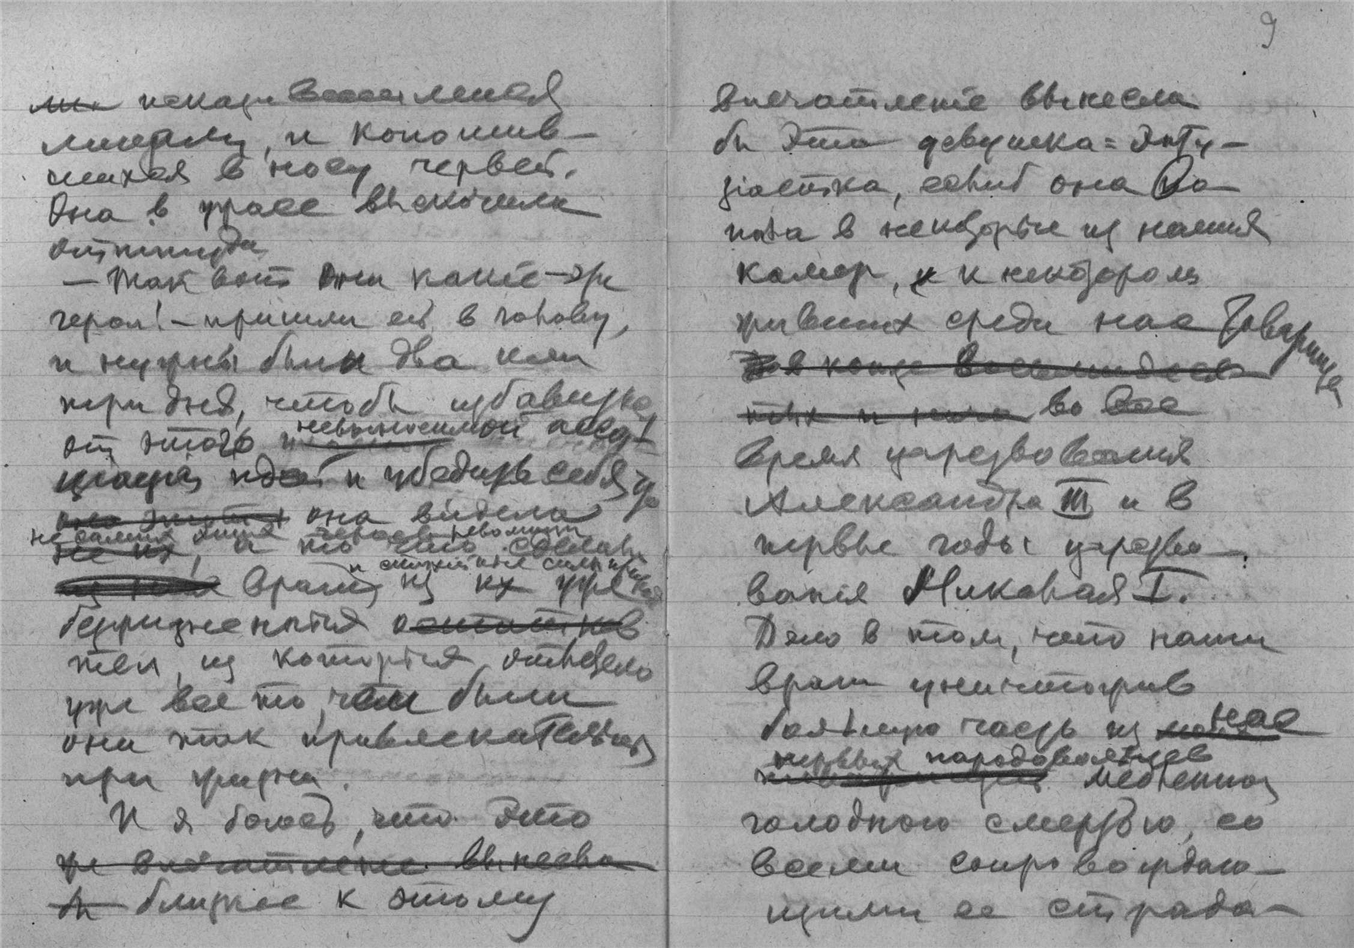 9
лицу, и копошив-
шихся в носу червей.
Она в ужасе выскочила
оттуда
— Так вот они какие-же
герои! — пришло ей в голову,
и нужны были два или
три дня, чтобы избавиться
от этого невыносимой ассо-
циации идей и убедить себя, что
она видела
не самих этих героев револющии
, а то что сделали
враги из их уже
безжизненных остатков
тел, из которых отлетело
уже все то, чем были
они так привлекательны
при жизни.
И я боюсь, что это
же впечатление вынесла
бы близкое к этому
впечатление вынесла
бы эта девушка-энту-
зіастка, если б она по-
пала в некоторые из наших
камер, и к некоторым
жившим среди нас товарищам
во все
время царствования
Александра III и в
первые годы царство-
вания Николая I.
Дело в том, что наши
враги уничтожив
большую часть из нас
первых народовольцев
медленной
голодною смертью, со
всеми сопровождаю-
щими ее страда-